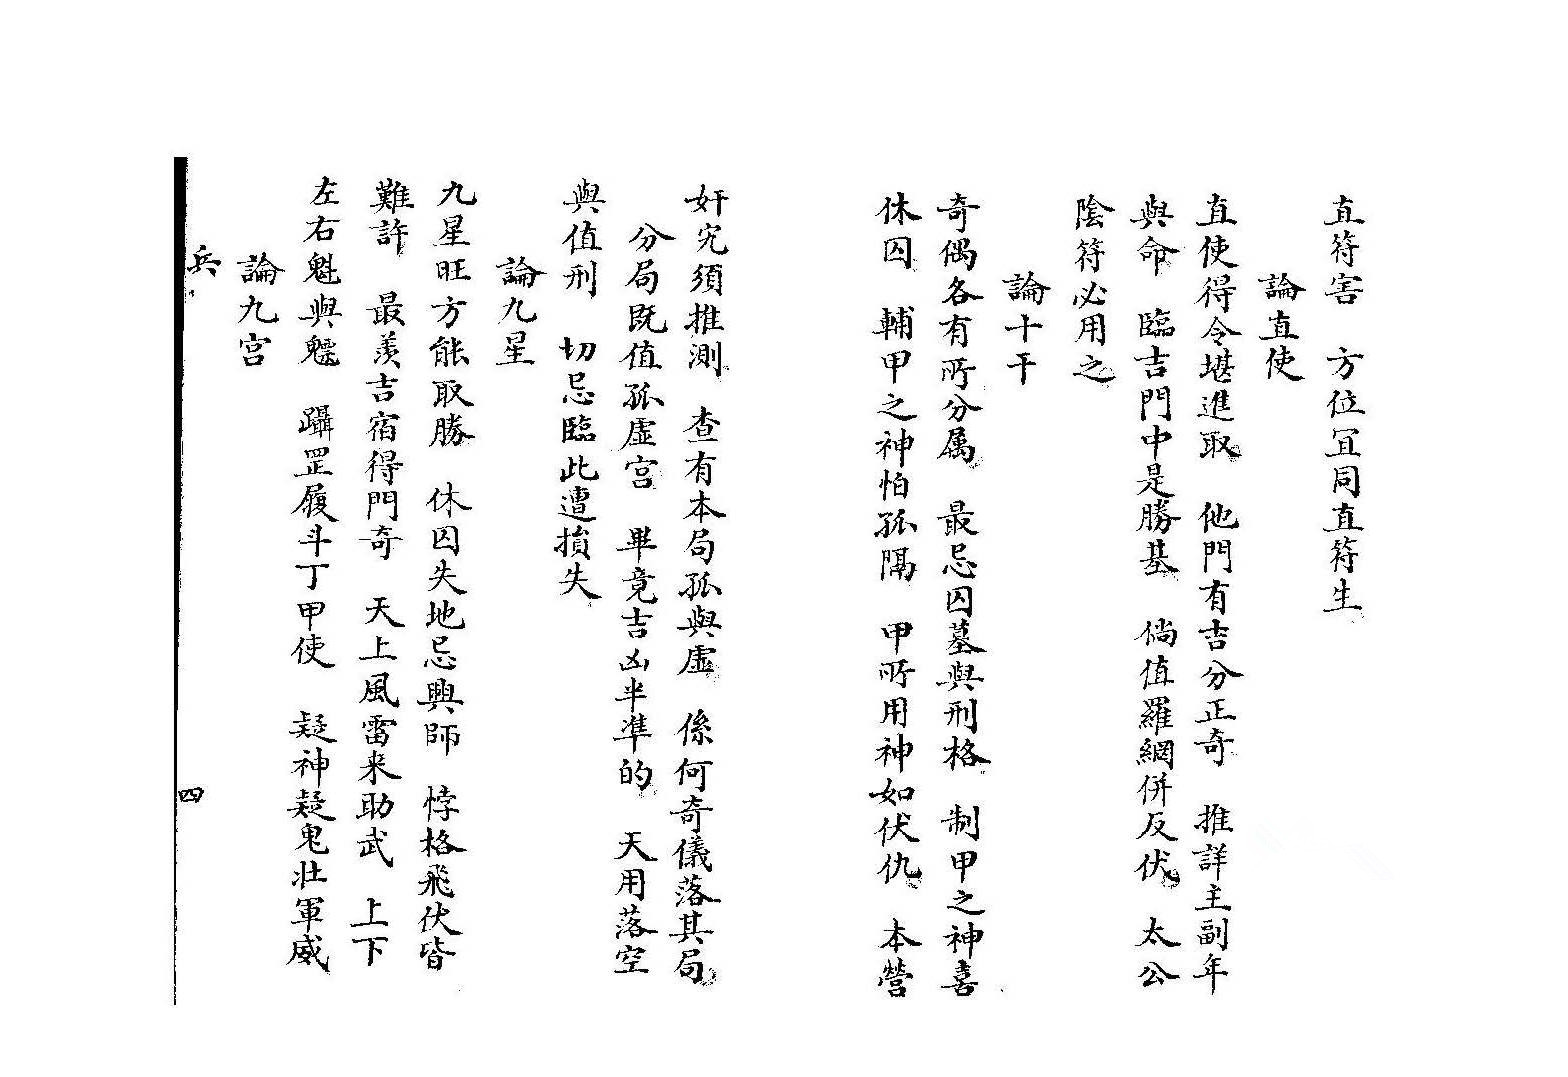 直符害 方位宜同直符生
論直使
直使得令堪進取 他門有吉分正奇 推詳主副年
與命 臨吉門中是勝基 倘值羅網併反伏 太公
陰符必用之
論十干
奇偶各有所分属 最忌囚墓與刑格 制甲之神喜
休囚 輔甲之神怕孤隔 甲所用神如伏仇 本營
奸宄須推測 查有本局孤與虛 係何奇儀落其局
分局既值孤虛宮 畢竟吉凶半準的 天用落空
與值刑 切忌臨此遭損失
論九星
九星旺方能取勝 休囚失地忌興師 悖格飛伏皆
難許 最羨吉宿得門奇 天上風雷来助武 上下
左右魁與魒 躡罡履斗丁甲使 疑神疑鬼壯軍威
論九宮
兵 四